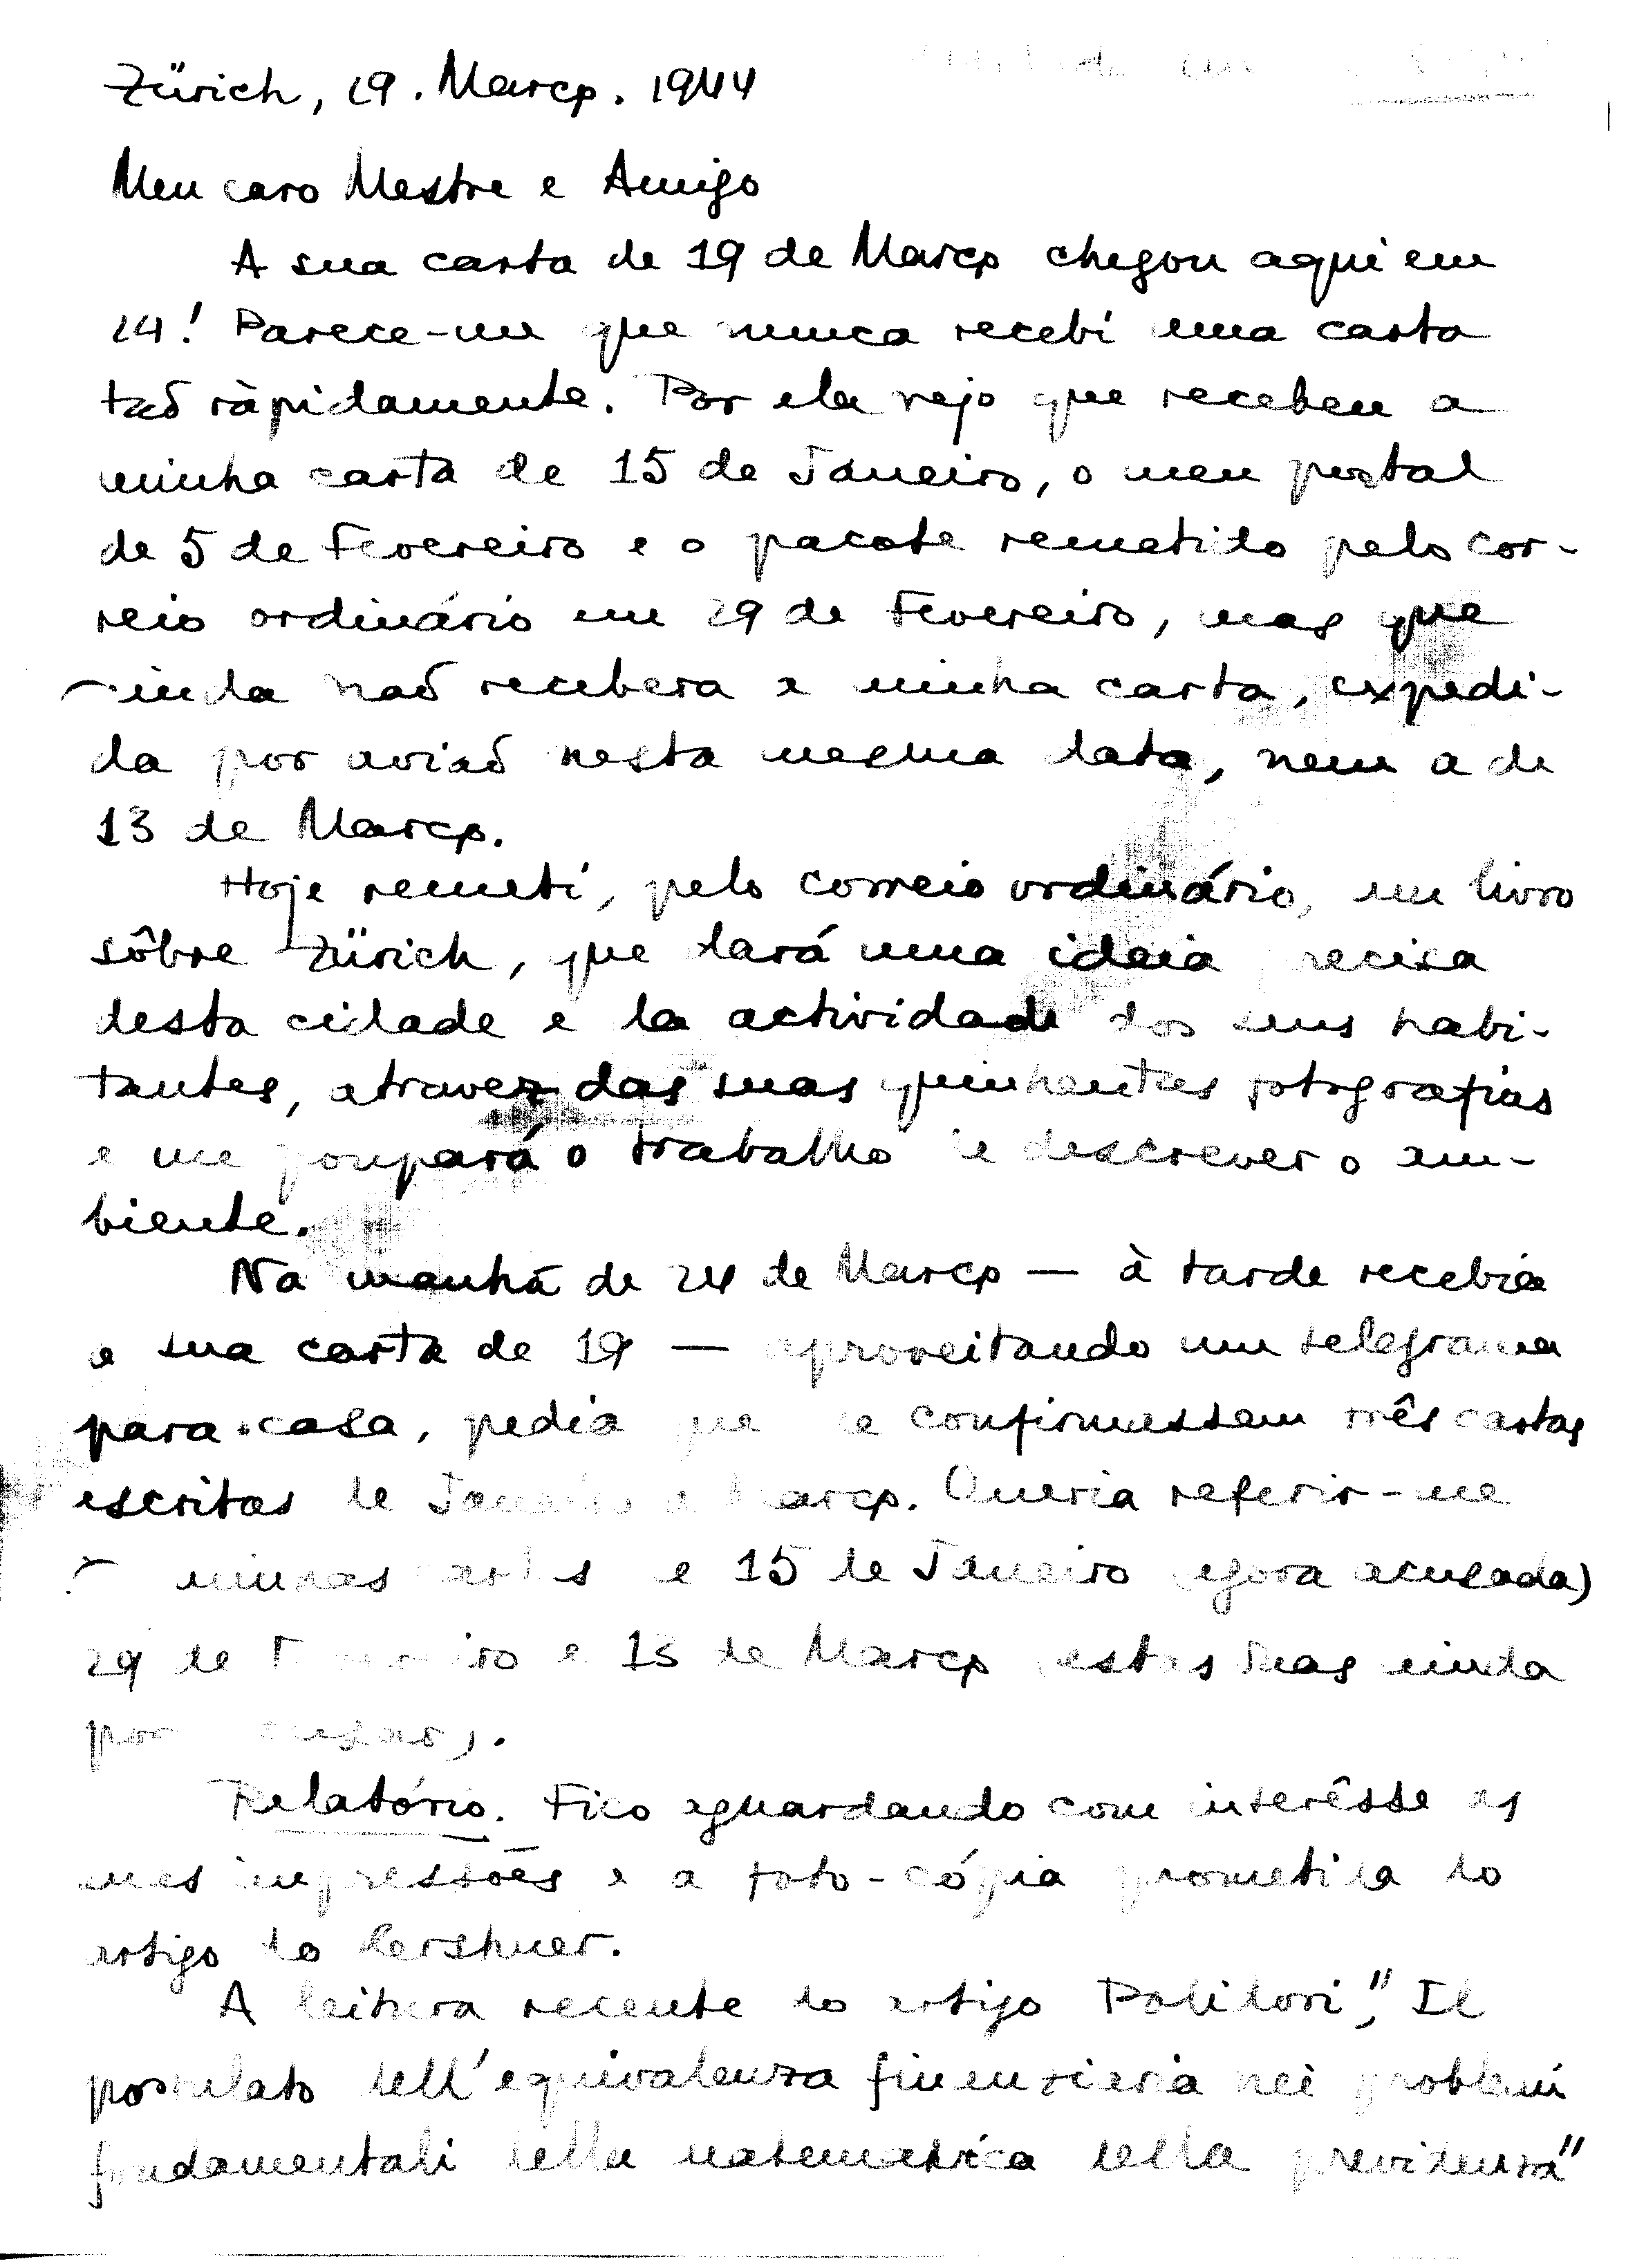 Zürich, 29. Março. 1944
Meu caro Mestre e Amigo
A sua carta de 19 de Março chegou aqui em
24! Parece-me que nunca recebi uma carta
taõ ràpidamente. Por ela vejo que recebeu a
minha carta de 15 de Janeiro, o meu postal
de 5 de Fevereiro e o pacote remetido pelo cor-
reio ordinário em 29 de Fevereiro, mas que
ainda naõ recebera a minha carta, expedi-
da por aviaõ nesta mesma data, nem a de
13 de Março.
Hoje remeti, pelo correio ordinário, um livro
sôbre Zürich, que dará uma ideia precisa
desta cidade e da actividade dos seus habi-
tantes, atravez das suas quinhentas fotografias
e me poupará o trabalho de descrever o am-
biente.
Na manhã de 24 de Março — à tarde recebia
a sua carta de 19 — aproveitando um telegrama
para casa, pedia que me confirmassem três cartas
escritas de Janeiro a Março. Queria referir-me
às minhas cartas de 15 de Janeiro (agora acusada)
29 de Fevereiro e 13 de Março (estas duas ainda
por acusar).
Relatório. Fico aguardando com interêsse as
suas impressões e a foto-cópia prometida do
artigo do Kershner.
A leitura recente do artigo Politori," Il
postulato dell'equivalenza finenzieria nei problemi
fondamentali della matematica della previdenza"